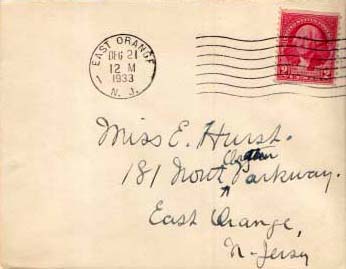 EAST ORANGE
DEC 21
12 M
1933
N. J.
2 2
Miss E. Hurst.
181 North Parkway.
East Orange,
N-Jersy